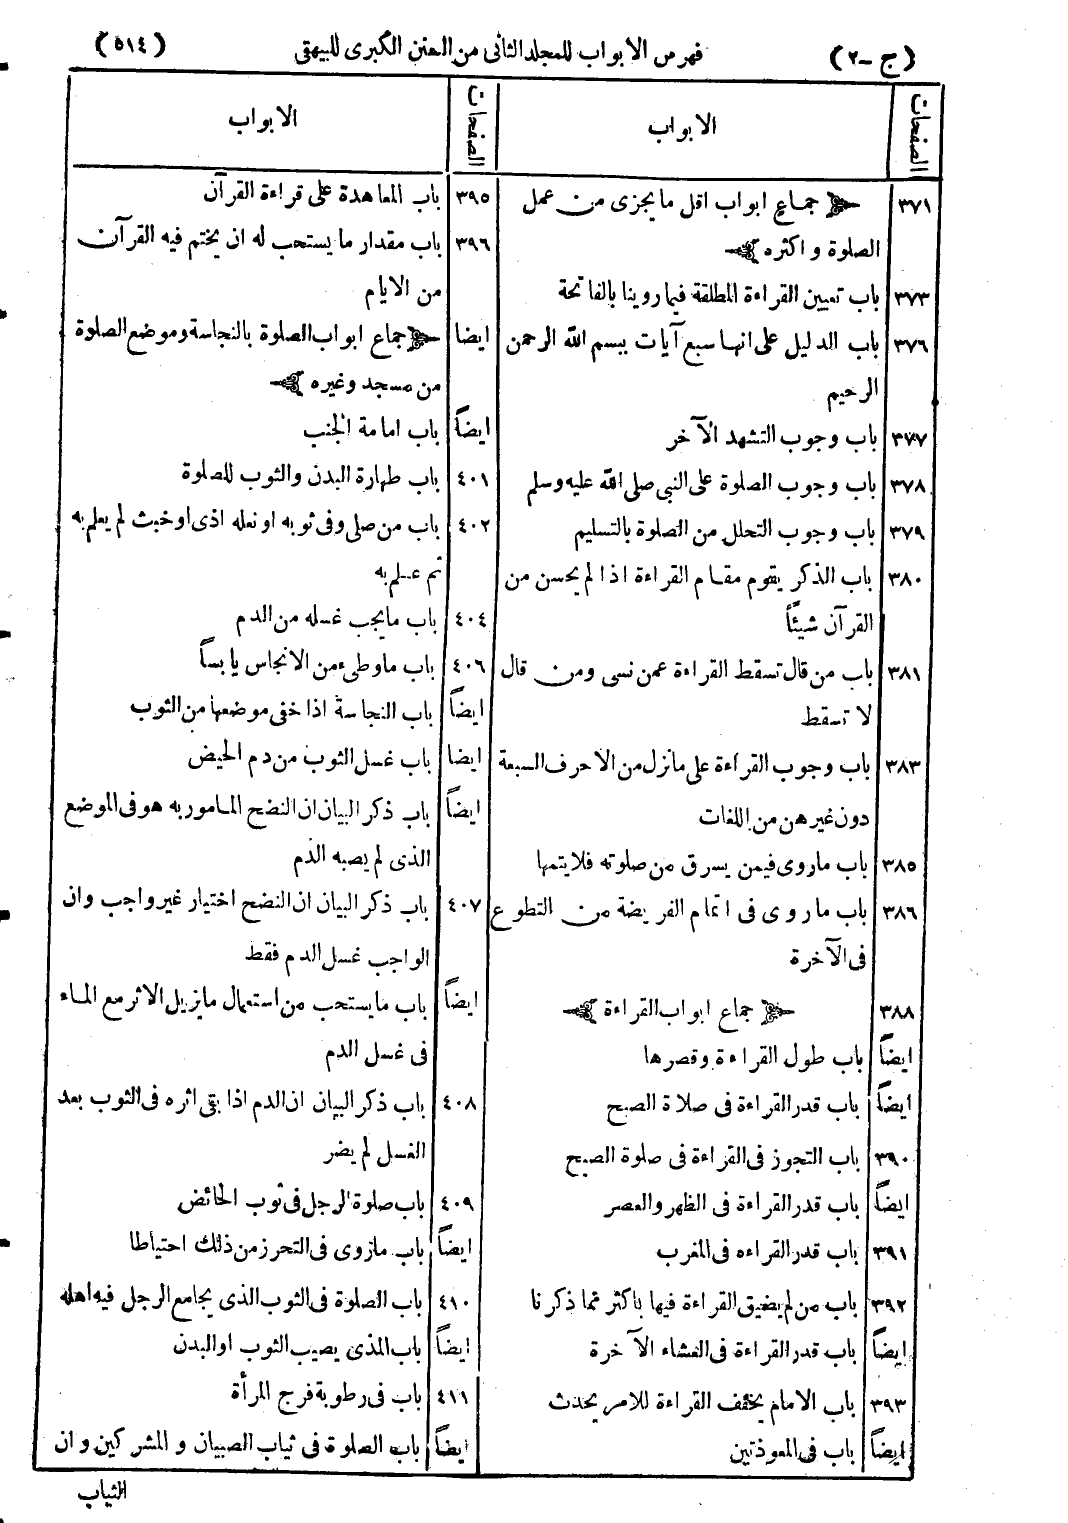 (ج-٢) فهرس الابواب للمجلد الثانى من السنن الكبرى للبيهقى (٥١٤)
الصفحات الابواب
٣٧١ جماع ابواب اقل ما يجزى من عمل
الصلوة و اكثره
٣٧٣ باب تعيين القراءة المطلقة فيما روينا بالفاتحة
٣٧٦ باب الدليل على انها سبع آيات ببسم الله الرحمن
الرحيم
٣٧٧ باب وجوب التشهد الآخر
٣٧٨ باب وجوب الصلوة على النبى صلى الله عليه وسلم
٣٧٩ باب وجوب التحلل من الصلوة بالتسليم
٣٨٠ باب الذكر يقوم مقام القراءة اذا لم يحسن من
القرآن شيئاً
٣٨١ باب من قال تسقط القراءة عمن نسى ومن قال
لا تسقط
٣٨٣ باب وجوب القراءة على ما نزل من الاحرف السبعة
دون غيرهن من اللغات
٣٨٥ باب ماروى فيمن يسرق من صلوته فلا يتمها
٣٨٦ باب ماروى فى اتمام الفريضة من التطوع
فى الآخرة
٣٨٨ جماع ابواب القراءة
ايضاً باب طول القراءة وقصرها
ايضاً باب قدر القراءة فى صلاة الصبح
٣٩٠ باب التجوز فى القراءة فى صلوة الصبح
ايضاً باب قدر القراءة فى الظهر والعصر
٣٩١ باب قدر القراءه فى المغرب
٣٩٢ باب من لم يضيق القراءة فيها باكثر مما ذكرنا
ايضاً باب قدر القراءة فى العشاء الآخرة
٣٩٣ باب الامام يخفف القراءة للامر يحدث
ايضاً باب فى المعوذتين
الصفحات الابواب
٣٩٥ باب المعاهدة على قراءة القرآن
٣٩٦ باب مقدار ما يستحب له ان يختم فيه القرآن
من الايام
ايضا جماع ابواب الصلوة بالنجاسة وموضع الصلوة
من مسجد وغيره
ايضاً باب امامة الجنب
٤٠١ باب طهارة البدن والثوب للصلوة
٤٠٢ باب من صلى وفى ثوبه او نعله اذى او خبث لم يعلم به
ثم علم به
٤٠٤ باب ما يجب غسله من الدم
٤٠٦ باب ما وطىء من الانجاس يابساً
ايضاً باب النجاسة اذا خفى موضعها من الثوب
ايضا باب غسل الثوب من دم الحيض
ايضاً باب ذكر البيان ان النضح المامور به هو فى الموضع
الذى لم يصبه الدم
٤٠٧ باب ذكر البيان ان النضح اختيار غير واجب وان
الواجب غسل الدم فقط
ايضاً باب ما يستحب من استعمال ما يزيل الاثر مع الماء
فى غسل الدم
٤٠٨ باب ذكر البيان ان الدم اذا بقى اثره فى الثوب بعد
الغسل لم يضر
٤٠٩ باب صلوة الرجل فى ثوب الحائض
ايضاً باب ماروى فى التحرز من ذلك احتياطا
٤١٠ باب الصلوة فى الثوب الذى يجامع الرجل فيه اهله
ايضاً باب المذى يصيب الثوب او البدن
٤١١ باب فى رطوبة فرج المرأة
ايضاً باب الصلوة فى ثياب الصبيان و المشركين و ان
الثياب